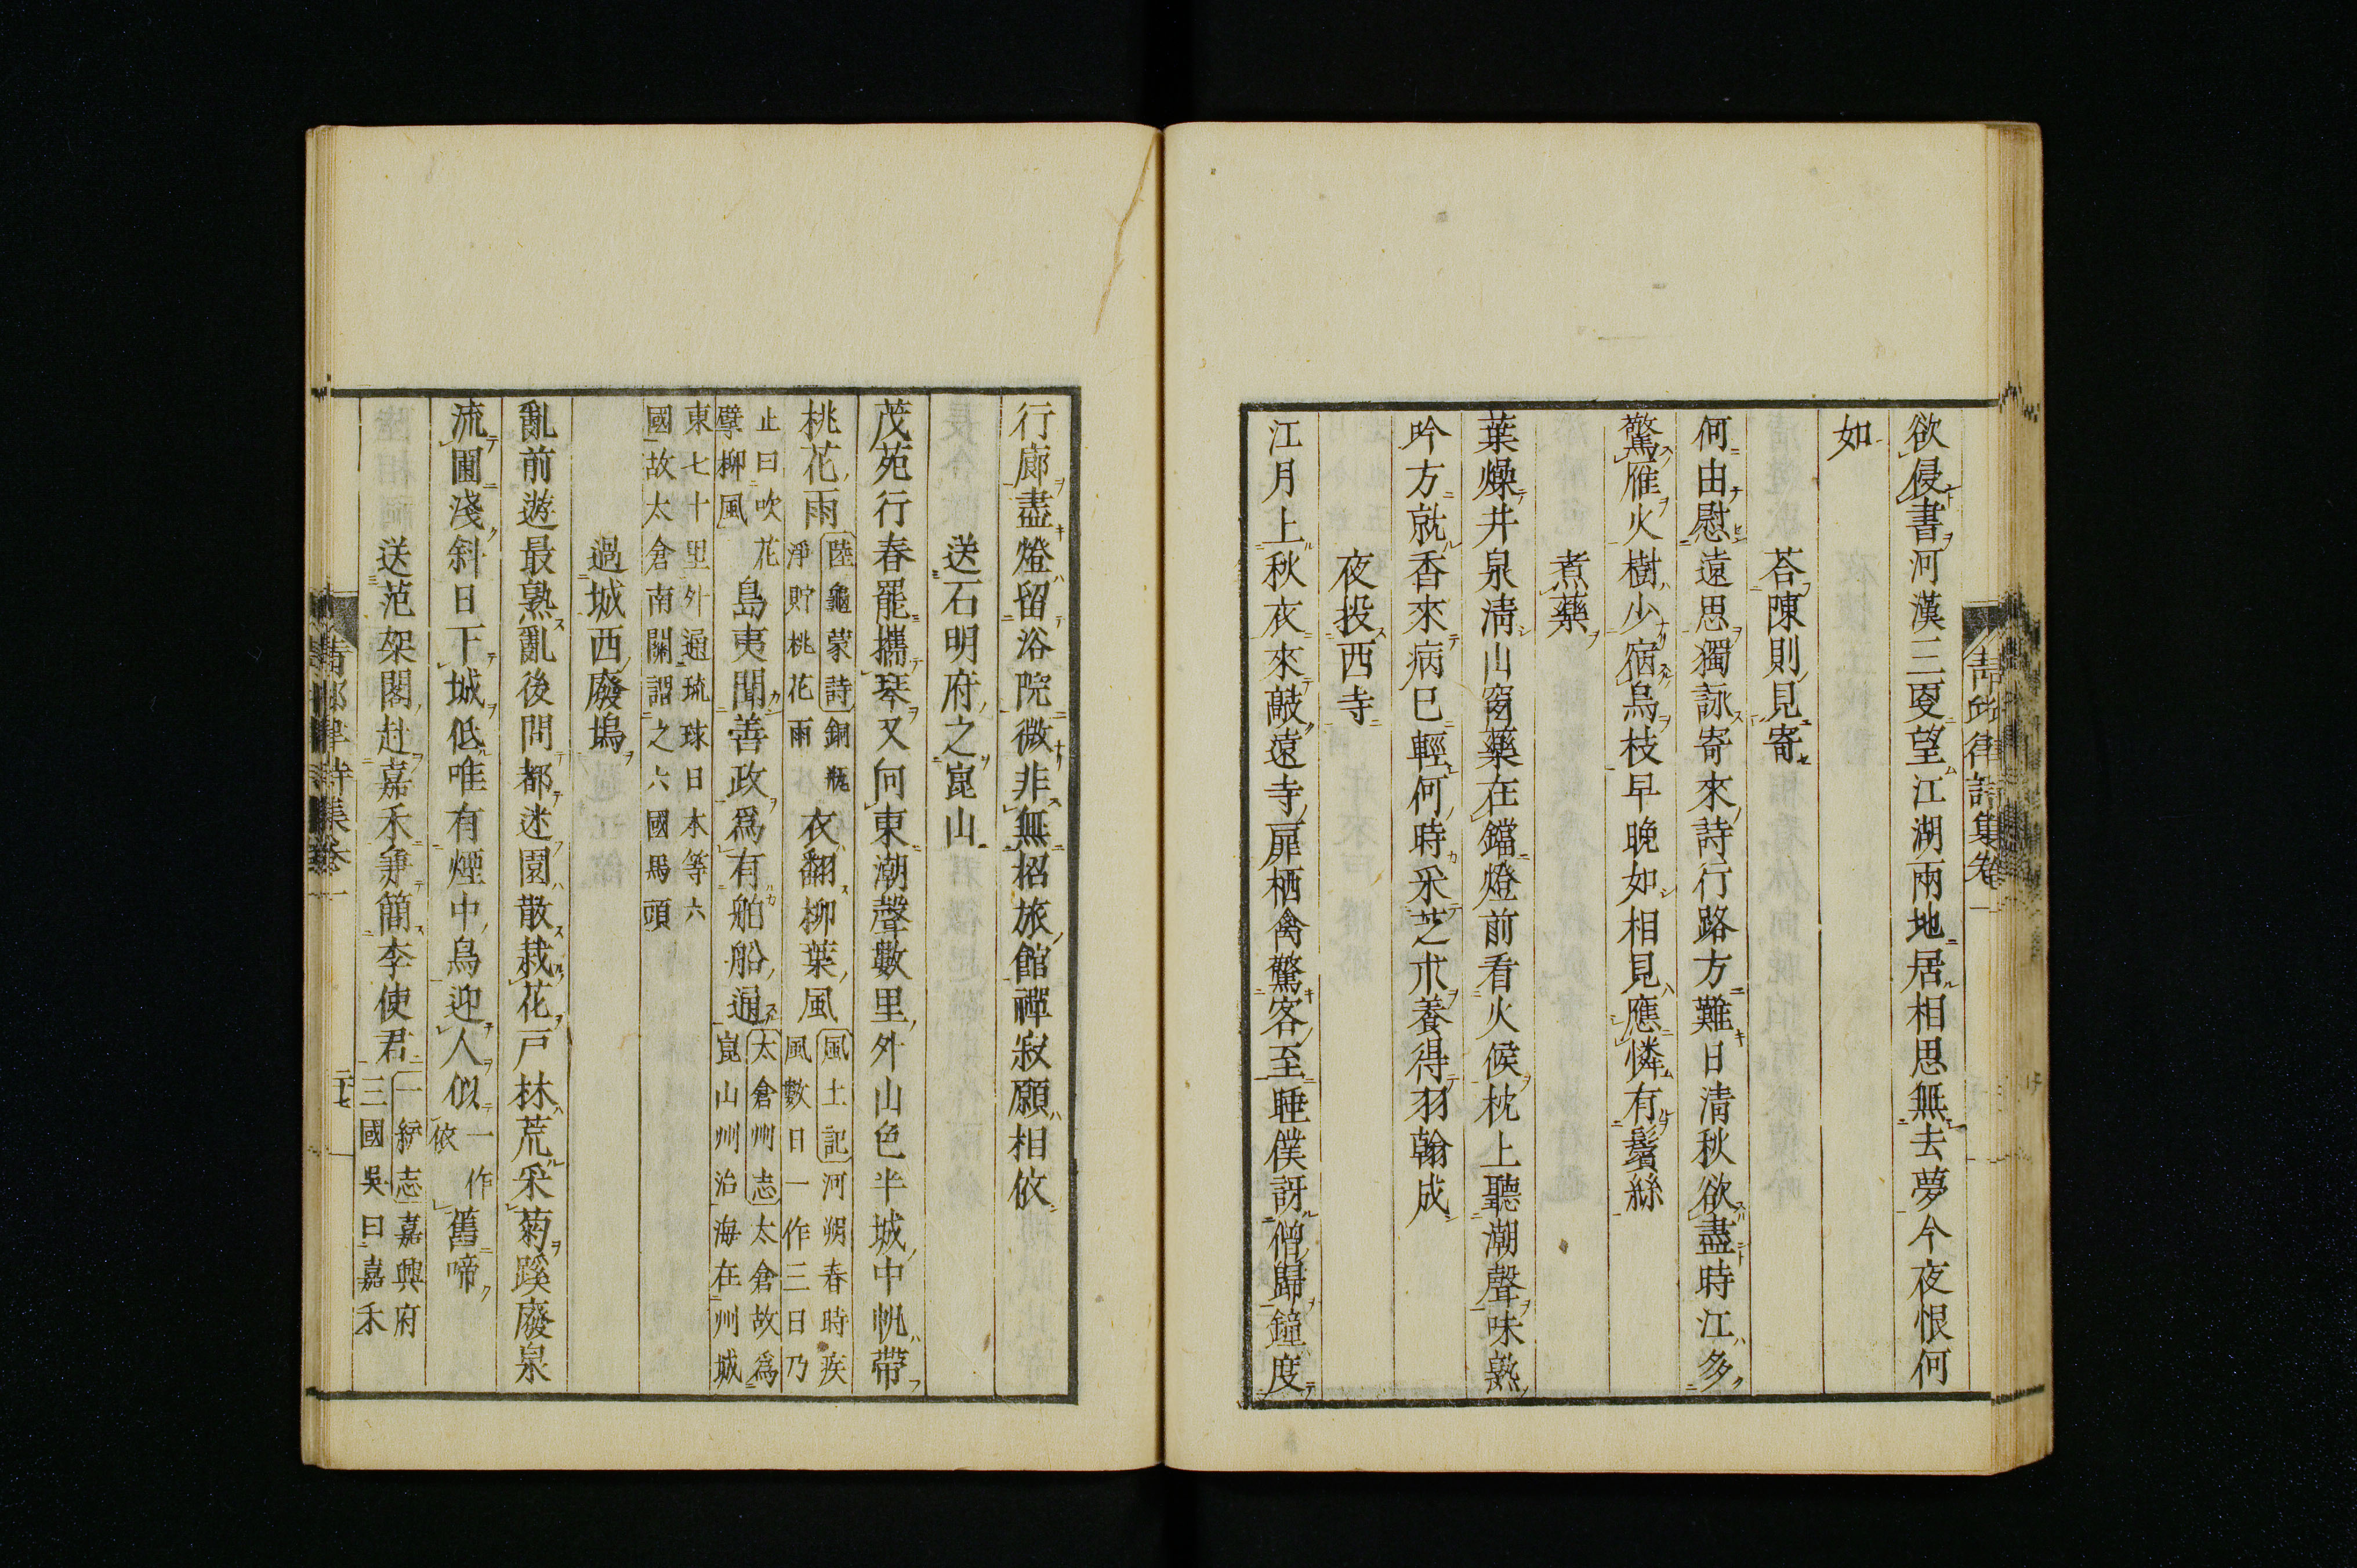 青邱律詩集卷一
欲侵書河漢三更望江湖兩地居相思無去夢今夜恨何
如
荅陳則見寄
何由慰遠思獨詠寄來詩行路方難日清秋欲盡時江多
驚雁火樹少宿烏枝早晚如相見應憐有鬢絲
煮藥
葉燥井泉淸山窗藥在鐺燈前看火候枕上聽潮聲味熟
吟方就香來病已輕何時采芝朮養得羽翰成
夜投西寺
江月上秋衣來敲遠寺扉栖禽驚客至睡僕訝僧歸鐘度
行廊盡燈留浴院微非無招旅館禪寂願相依
送石明府之崑山
茂苑行春罷攜琴又向東潮聲數里外山色半城中帆帶
桃花雨陸龜蒙詩銅瓶淨貯桃花雨衣翻柳葉風風土記河朔春時疾風數日一作三日乃
止曰吹花擘柳風島夷聞善政爲有舶船通太倉州志太倉故爲崑山州治海在州城
東七十里外通琉球日本等六國故太倉南關謂之六國馬頭
過城西廢塢
亂前遊最熟亂後問都迷園散栽花戸林荒采菊蹊廢泉
流圃淺斜日下城低唯有煙中鳥迎人似一作依舊啼
送范架閣赴嘉禾兼簡李使君一統志嘉興府三國吳曰嘉禾
青邱律詩集卷一
二十七